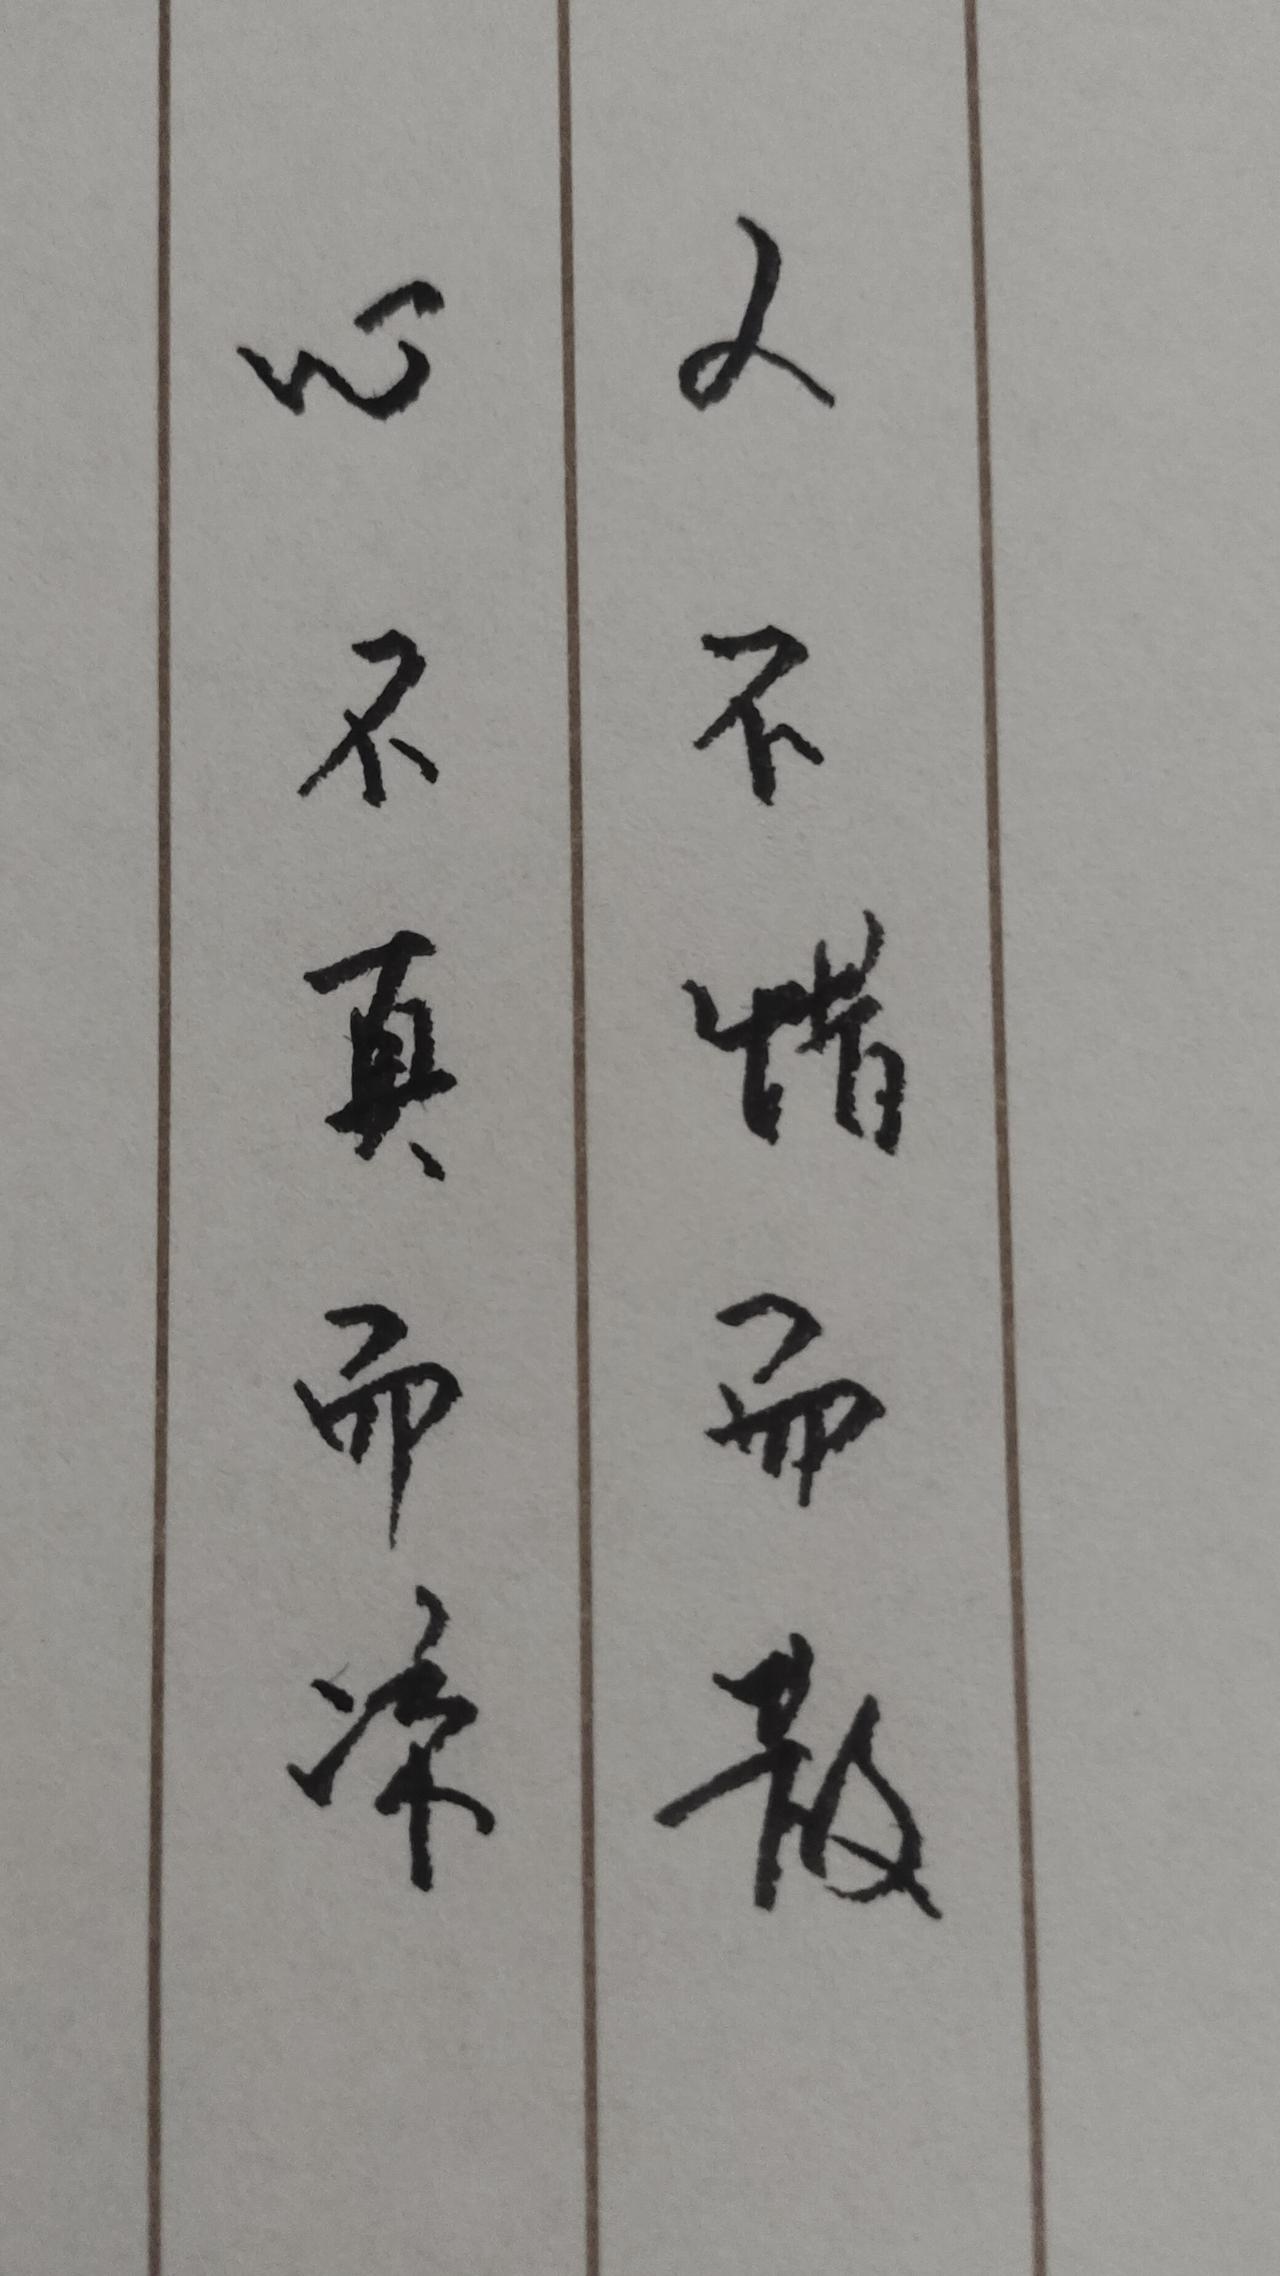 人不惜而散
心不真而凉